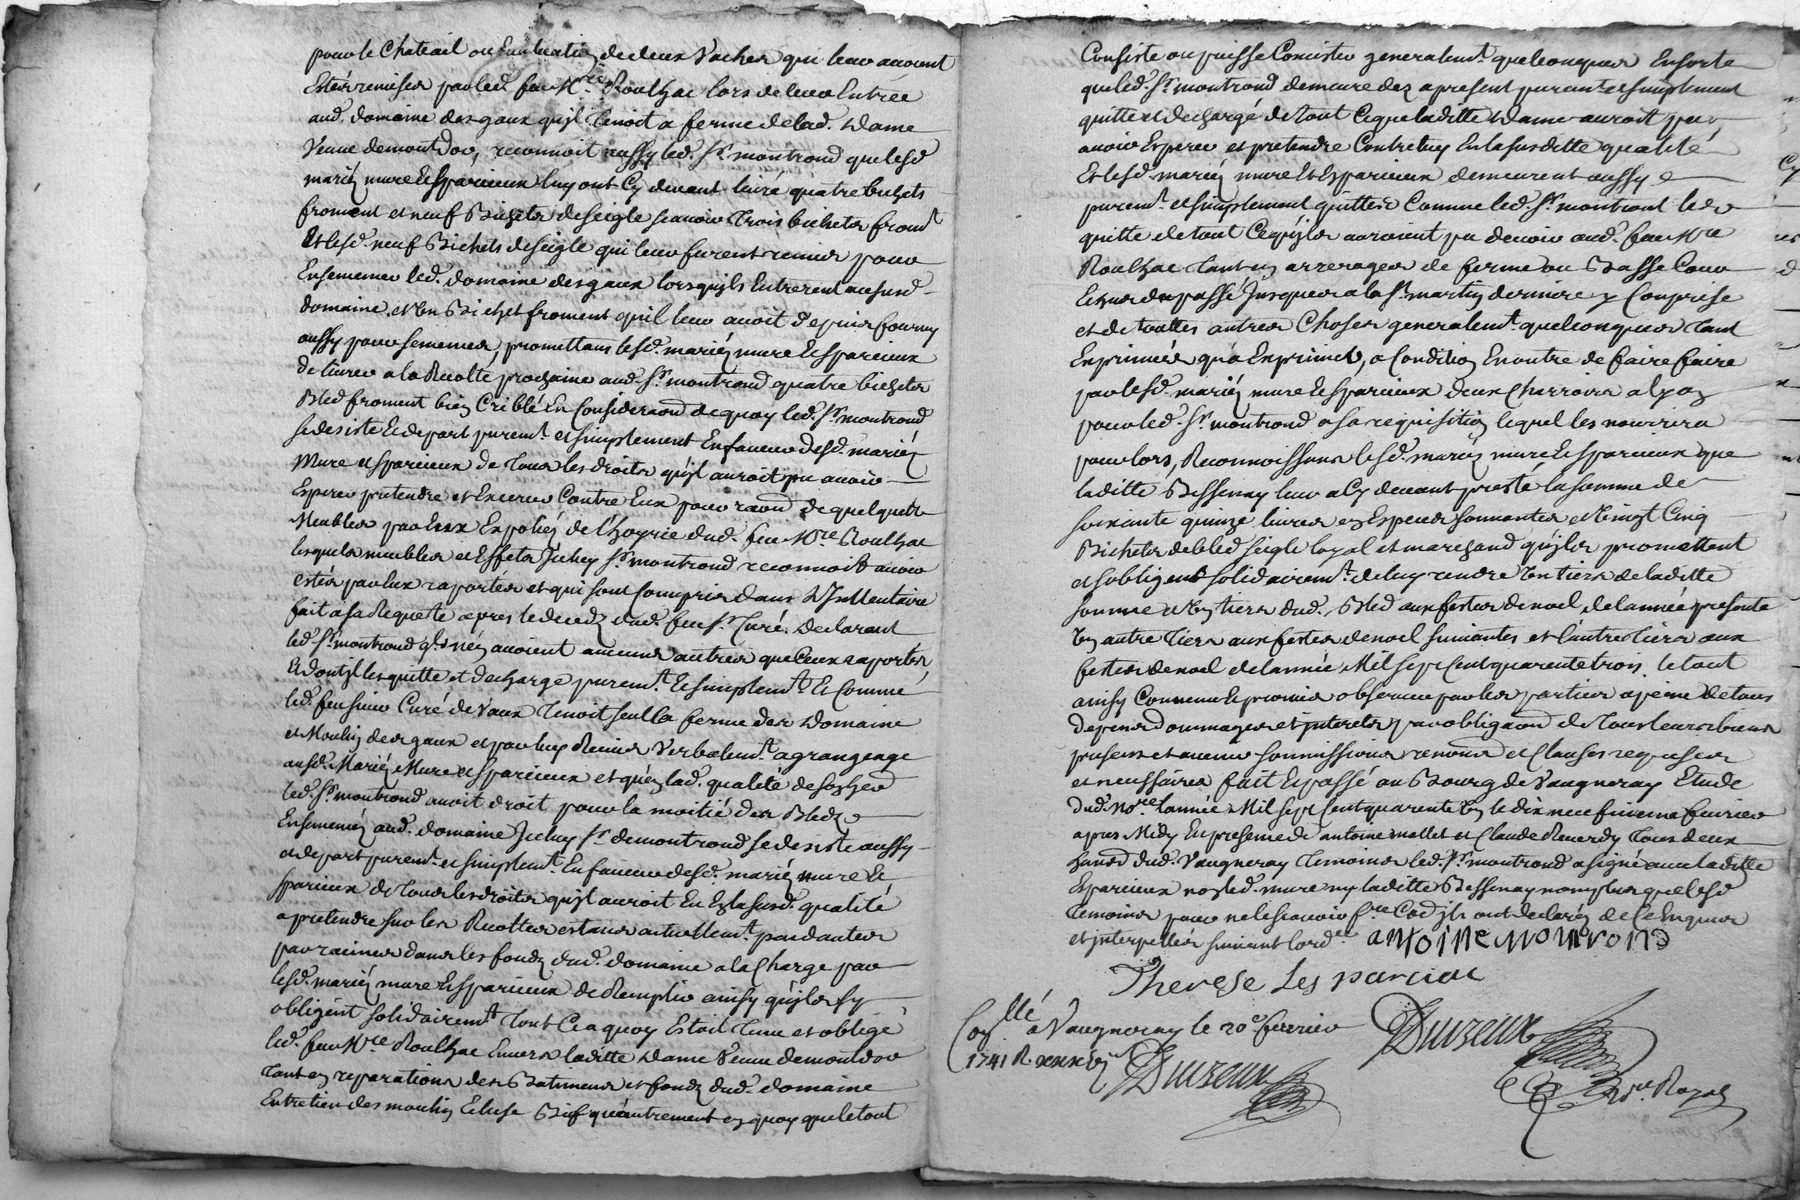 pour le Chateail ou Evaluation de deux Vaches qui leur avoient
Estés remises par led. feu Mre Roulhac lors de leur Entrée
aud. domaine des gaux qu'jl Tenoit a ferme de lad. Dame
Veuve demontDor, reconnoit aussy led. Sr. montrond que lesd
mariéz mure et Esparcieux luy ont Cy devant livré quatre bichets
froment et neuf Bichets de seigle scavoir Trois bichets fromt
Et lesd. neuf Bichets de seigle qui leur furent remis pour
Ensemencer led. domaine des gaux lorsqu'jls Entrerent au susd
domaine. et Un Bichet froment qu'il leur avoit depuis fourny
aussy pour semences, promettans lesd. mariéz mure et Esparcieux
de livrer a la Recolte prochaine aud. Sr. montrond quatre bichets
Bled froment bien Criblé En Consideraon de quoy led. Sr. montrond
se desiste Et depart puremt. et simplement En faveur desd. mariéz
Mure et Sparcieux de Tous les droits qu'jl auroit pu avoir
Esperer pretendre et Exercer Contre Eux pour raon de quelques
Meubles par Eux Expoliés de l'hoyrie dud. feu Mre Roulhac
lesquels meubles et Effets Jceluy Sr. montrond reconnoit avoir
estés par Eux raportés et qui sont Compris dans L'Jnventaire
fait a sa Requete apres le decedz dud. feu Sr. Curé. Declarant
led. Sr. montrond qls n'en avoient aucuns autres que Ceux raportés,
Et dont jl les quitte et decharge puremt. Et simplemt. Et Comme
led. feu sieur Curé de Vaux Tenoit seul la ferme des Domaine
et Moulin des gaux et par luy Remis Verbalemt. a grangeage
ausd. Mariéz Mure et Sparcieux et qu'en lad. qualité de
led. Sr. montrond avoit droit pour la moitié des Bledz
Ensemencéz aud. domaine Jceluy Sr. de montrond se desiste aussy
et depart puremt. et simplemt. En faveur desd. mariéz mure Et
sparcieux de Tous les droits qu'jl auroit Eu En la susd. qualité
a pretendre sur les Recoltes estans actuellemt. pendantes
par racines dans les fondz dud. domaine a la Charge par
lesd. mariéz mure et Esparcieux de Remplir ainsy qu'jls s'y
obligent solidairemt. Tout Ce a quoy Estoit Tenu et obligé
led. feu Mre Roulhac Envers laditte Dame Veuve demontdor
Tant en reparations des Batimens et fondz dud. domaine
Entretien des moulin Ecluse Bief qu'autrement en quoy que le tout
Consiste ou puisse Consister generalemt. quelconques En sorte
que led. Sr. montrond demeure dez apresent puremt. et simplement
quitte et dechargé de Tout Ce que laditte Dame auroit pu
avoir Esperer et pretendre Contre luy En la susditte qualité
Et lesd. mariéz mure Et Esparcieux demeurent aussy
puremt. et simplement quittes Comme led. Sr. montront les
quitte de tout Ce qu'jls auroient pu devoir aud. feu Mre
Roulhac Tant en arrerages de ferme ou Basse Cour
Echus du passé Jusques a la St. martin derniere y Comprise
et de touttes autres Choses generalemt. quelconques Tant
Exprimées qu'a Exprimer, a Condition En outre de faire faire
par lesd. mariéz mure et Esparcieux deux Charrois a Lyon
pour led. Sr. montrond a sa requisition lequel les nourrira
pour lors, Reconnoissans lesd. mariéz mure et Esparcieux que
laditte Bessenay leur a Cy devant presté la somme de
soixante quinze livres en Especes sonnantes et Vingt Cinq
Bichets de bled seigle loyal et marchand qu'jls promettent
et s'obligent solidairemt. de luy rendre Un tiers de laditte
somme et Un tiers dud. Bled aux festes de noel de l'année presente
Un autre Tiers aux festes de noel suivantes et l'autre Tiers aux
festes de noel de l'année Mil sept Cent quarente trois. le tout
ainsy Convenu Et promis observer par les parties a peine de tous
depens dommages et jnterets par obligaon de Tous leurs biens
presens et avenir soumissions renonons et Clauses requises
et necessaires fait Et passé au Bourg de Vaugneray Etude
dud. Nore. l'année Mil sept Cent quarente Un le dix neufvieme fevrier
apres Midy En presence de antoine mallet et Claude Reverdy Tous deux
dud. Vaugneray Temoins led. Sr. montrond a signé avec laditte
Esparcieux non led. mure ny laditte Bessenay non plus que lesd
Temoins pour ne le scavoir fre Code jls ont declaréz de Ce Enquis
et jnterpellés suivant l'ordce antoine montrond
Therese Les parcieu
Conllé a Vaugneray le 20e. fevrier
1741 R. Duizeux
Duizeux
Nore. Royal